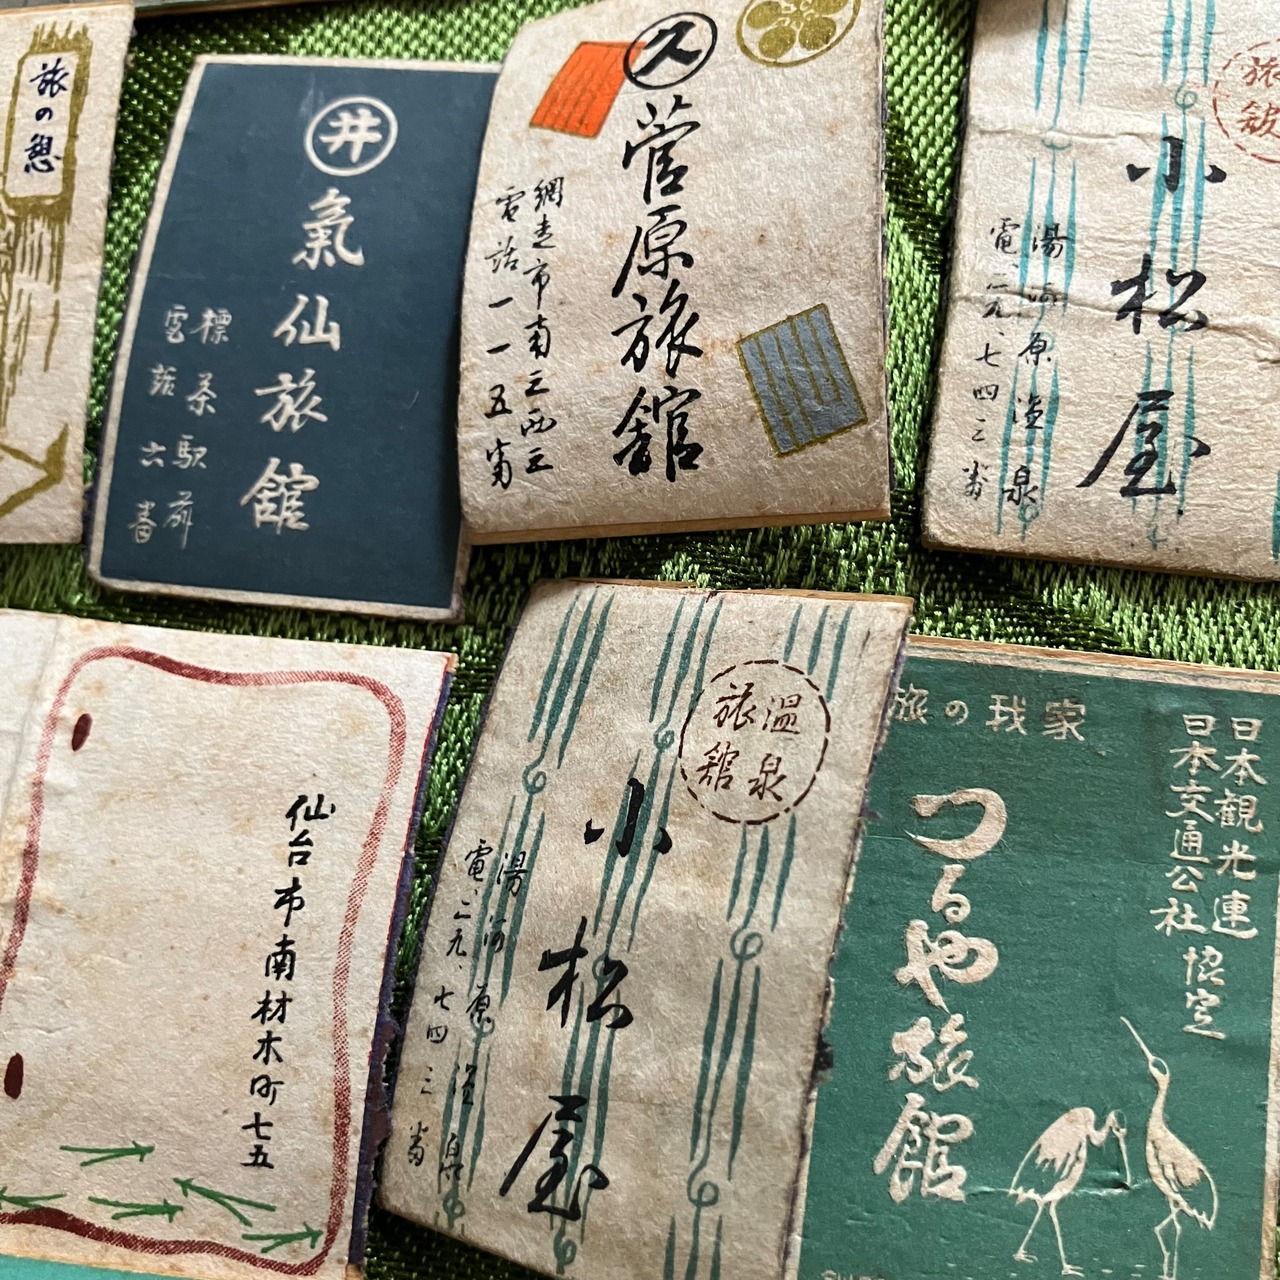 旅の憩
井
氣仙旅館
標茶駅前
電話六番
久
菅原旅館
網走市南三西三
電話一一五番
旅館
小松屋
湯河原温泉
電、二九、七四三番
仙台市南材木町七五
温泉
旅館
小松屋
湯河原温泉
電、二九、七四三番
旅の我家
日本観光連
日本交通公社
協定
つるや旅館